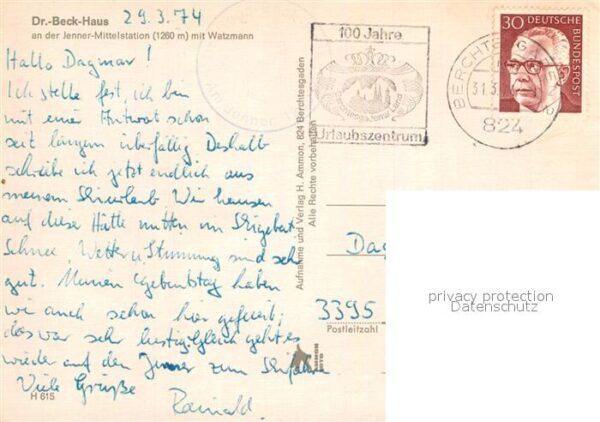 Dr.-Beck-Haus
an der Jenner-Mittelstation (1260 m) mit Watzmann
29.3.74
Hallo Dagmar!
Ich stelle fest, ich bin
mit einer Antwort schon
seit langem überfällig. Deshalb
schreibe ich jetzt endlich aus
meinem Skiurlaub. Wir hausen
auf dieser Hütte mitten im Skigebiet.
Schnee, Wetter u. Stimmung sind sehr
gut. Meinen Geburtstag haben
wir auch schon hier gefeiert;
das war sehr lustig. Gleich geht es
wieder auf den Jenner zum Skifahren
Viele Grüße
Rainald.
H 615
Aufnahme und Verlag H. Ammon, 824 Berchtesgaden
Alle Rechte vorbehalten
100 Jahre
Urlaubszentrum
30 DEUTSCHE
BUNDESPOST
BERCHTESG
31.3
824
Dag
3395
Postleitzahl
privacy protection
Datenschutz